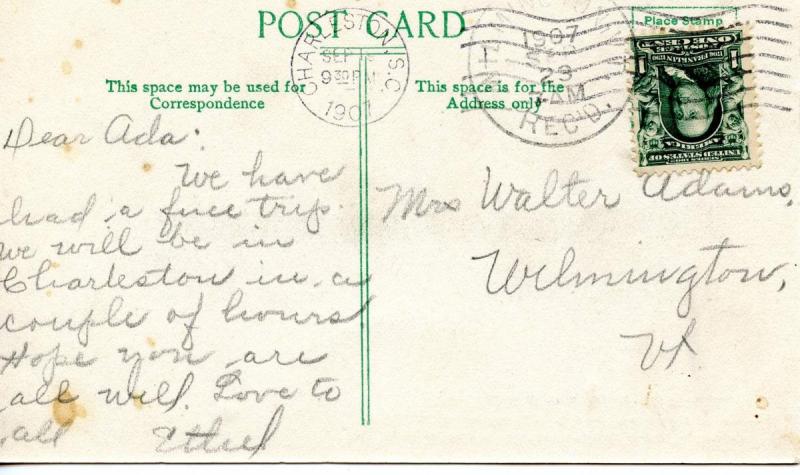 POST CARD
Place Stamp
CHARLESTON, S.C.
SEP
9 30 PM
1907
1907
23
AM
REC'D.
ONE CENT 1
1706 FRANKLIN 1790
UNITED STATES OF
AMERICA
SERIES 1902
This space may be used for
Correspondence
This space is for the
Address only
Dear Ada:
We have
had a fine trip.
We will be in
Charleston in a
couple of hours
Hope you are
all well. Love to
all Ethel
Mrs Walter Adams,
Wilmington,
Vt.